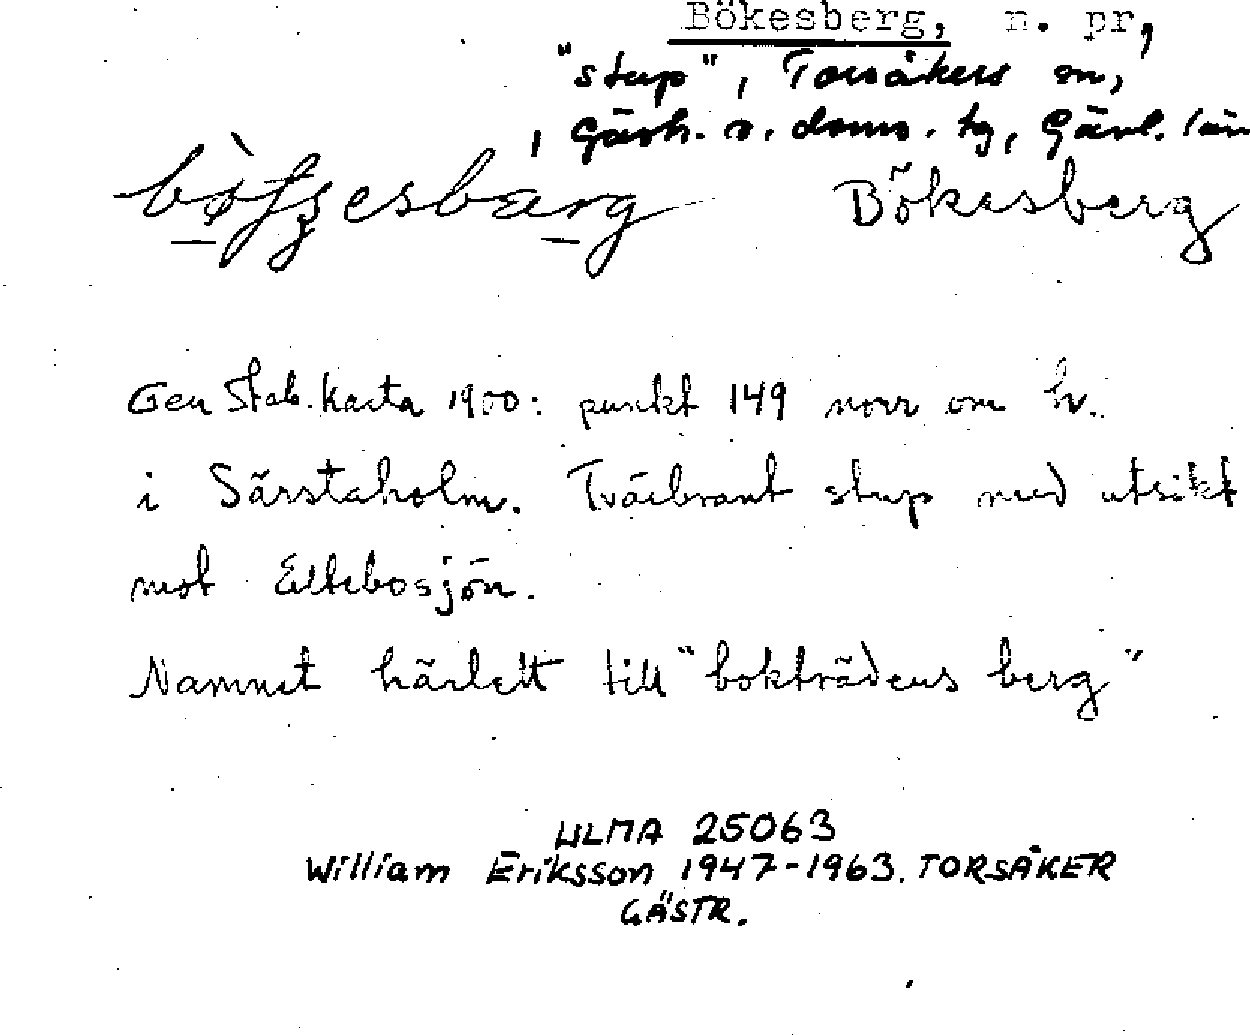 Bökesberg, n. pr,
"stup", Torsåkers sn,
, Gästr. ö. doms. tg, Gävl. län
Bökesberg
Gen Stab. karta 1900: punkt 149 norr om h.
i Särstaholm. Tvärbrant stup med utsikt
mot Eltebosjön.
Namnet härlett till "bokträdens berg"
ULMA 25063
William Eriksson 1947-1963. TORSÅKER
GÄSTR.